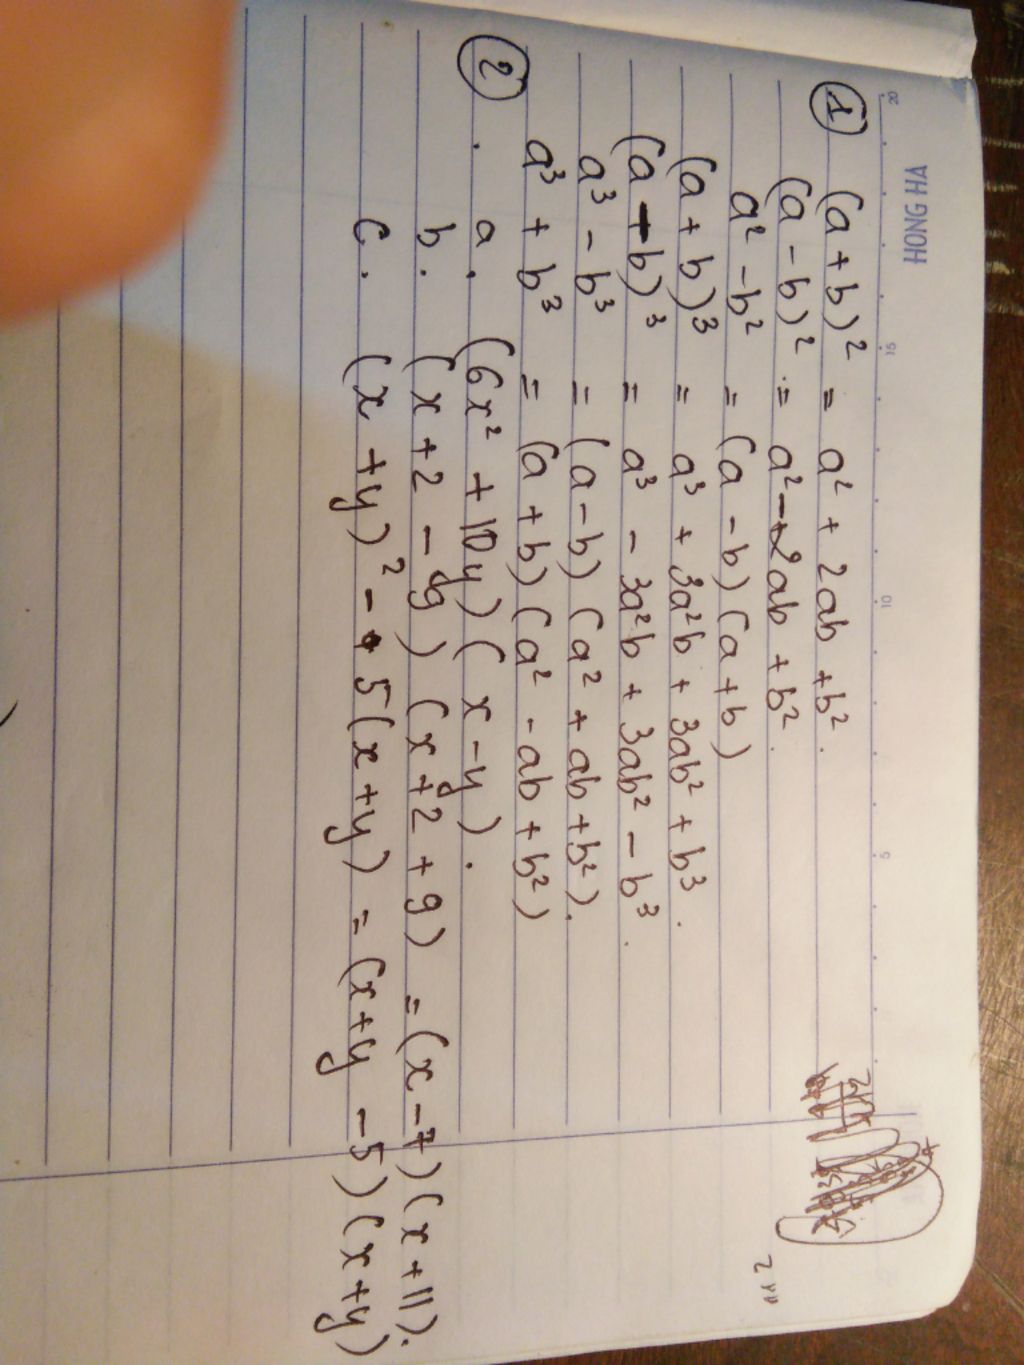 HONG HA
20 15 10 5
① (a + b)² = a² + 2ab + b².
(a - b)² = a² - 2ab + b².
a² - b² = (a - b)(a + b)
(a + b)³ = a³ + 3a²b + 3ab² + b³.
(a + b)³ = a³ - 3a²b + 3ab² - b³.
a³ - b³ = (a - b)(a² + ab + b²).
a³ + b³ = (a + b)(a² - ab + b²)
② . a. (6x² + 10y)(x - y).
b. (x + 2 - 9)(x + 2 + 9) = (x - 7)(x + 11).
c. (x + y)² - 5(x + y) = (x + y - 5)(x + y)